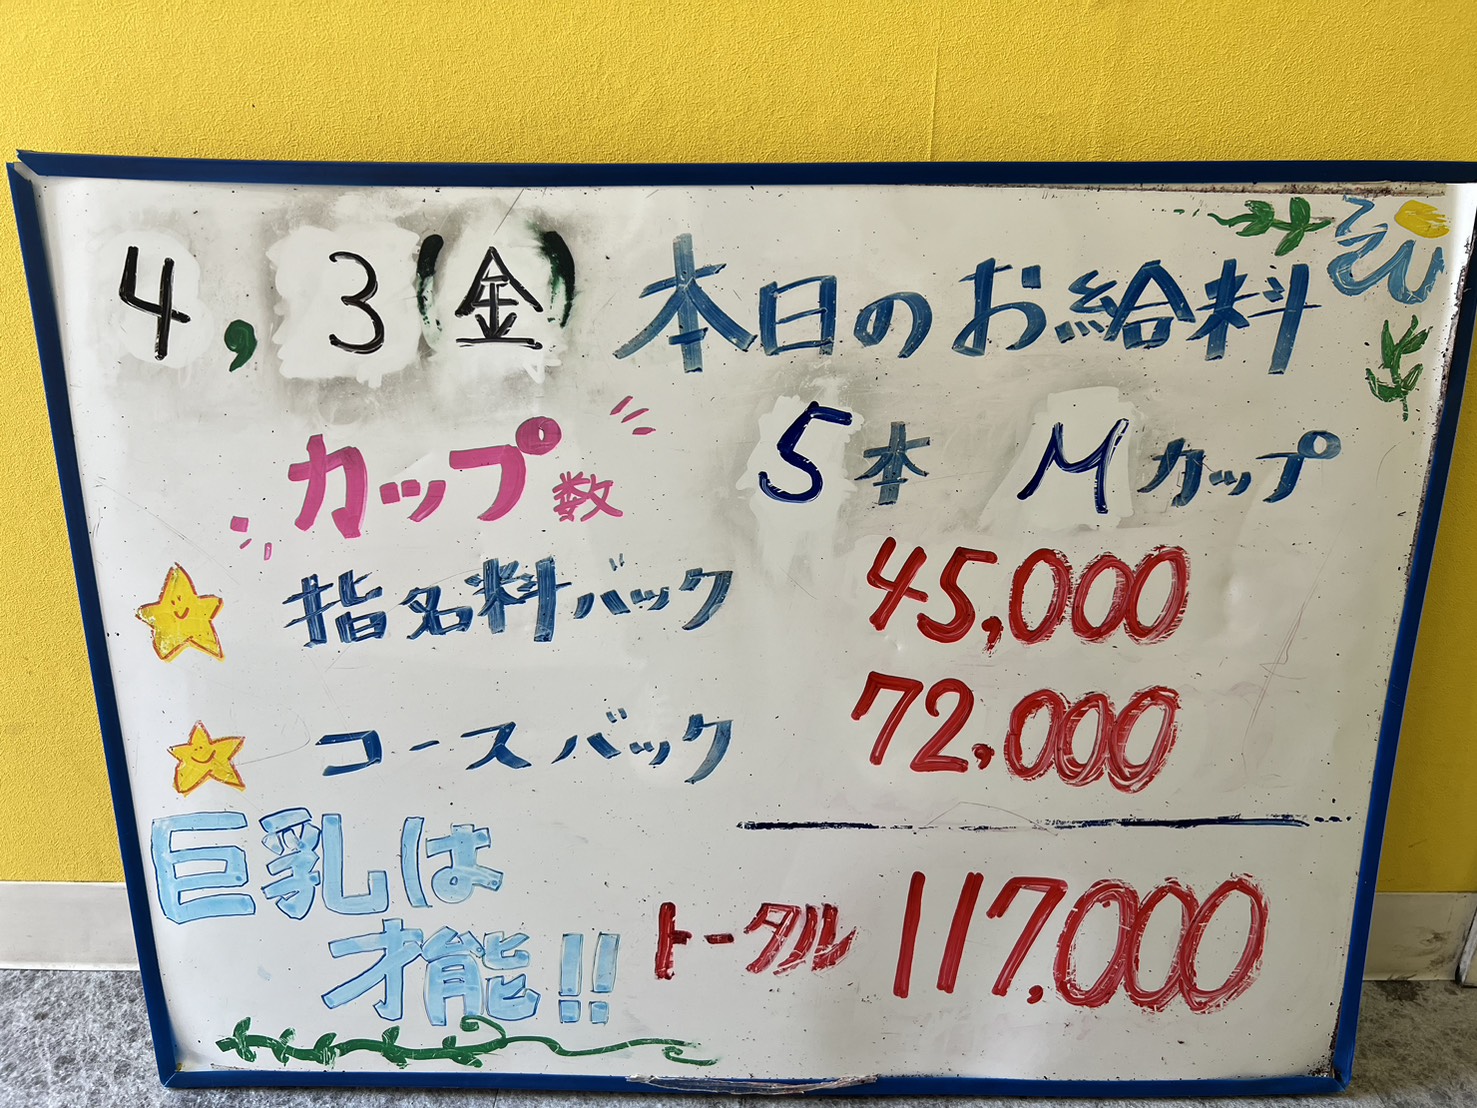 4,3(金) 本日のお給料
カップ数 5本 Mカップ
指名料バック 45,000
コースバック 72,000
巨乳は
才能!! トータル 117,000